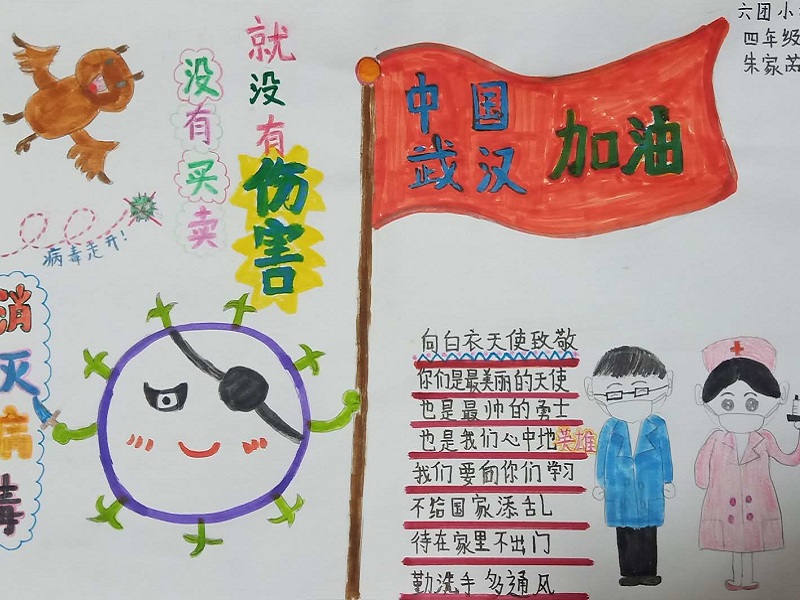 六团小
四年级
朱家
没有买卖
就没有
伤害
中国
武汉
加油
病毒走开!
消灭病毒
向白衣天使致敬
你们是最美丽的天使
也是最帅的勇士
也是我们心中地英雄
我们要向你们学习
不给国家添乱
待在家里不出门
勤洗手多通风